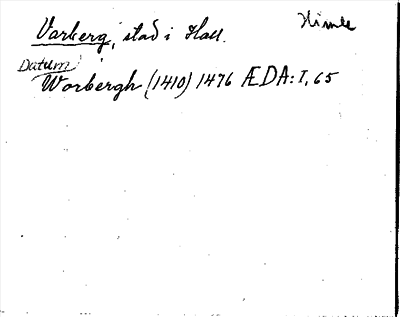 Varberg, stad i Hall. Himle
Datum
Worbergh (1410) 1476 ÆDA: I, 65